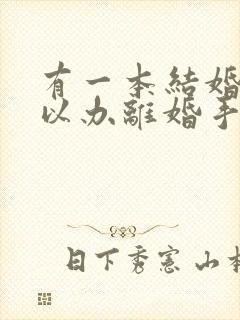 有一本結婚
以办離婚手
日下秀憲 山本